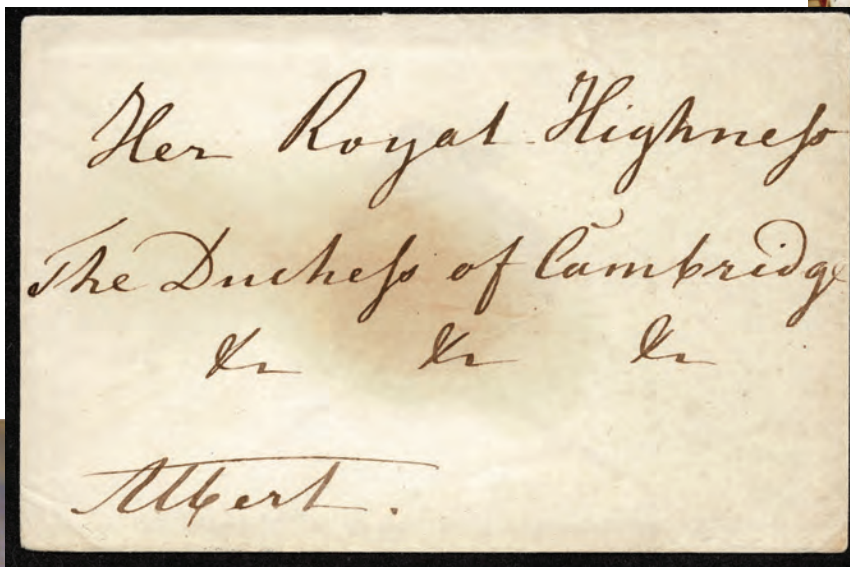 Her Royal Highneſs
The Ducheſs of Cambridge
&c &c &c
Albert.